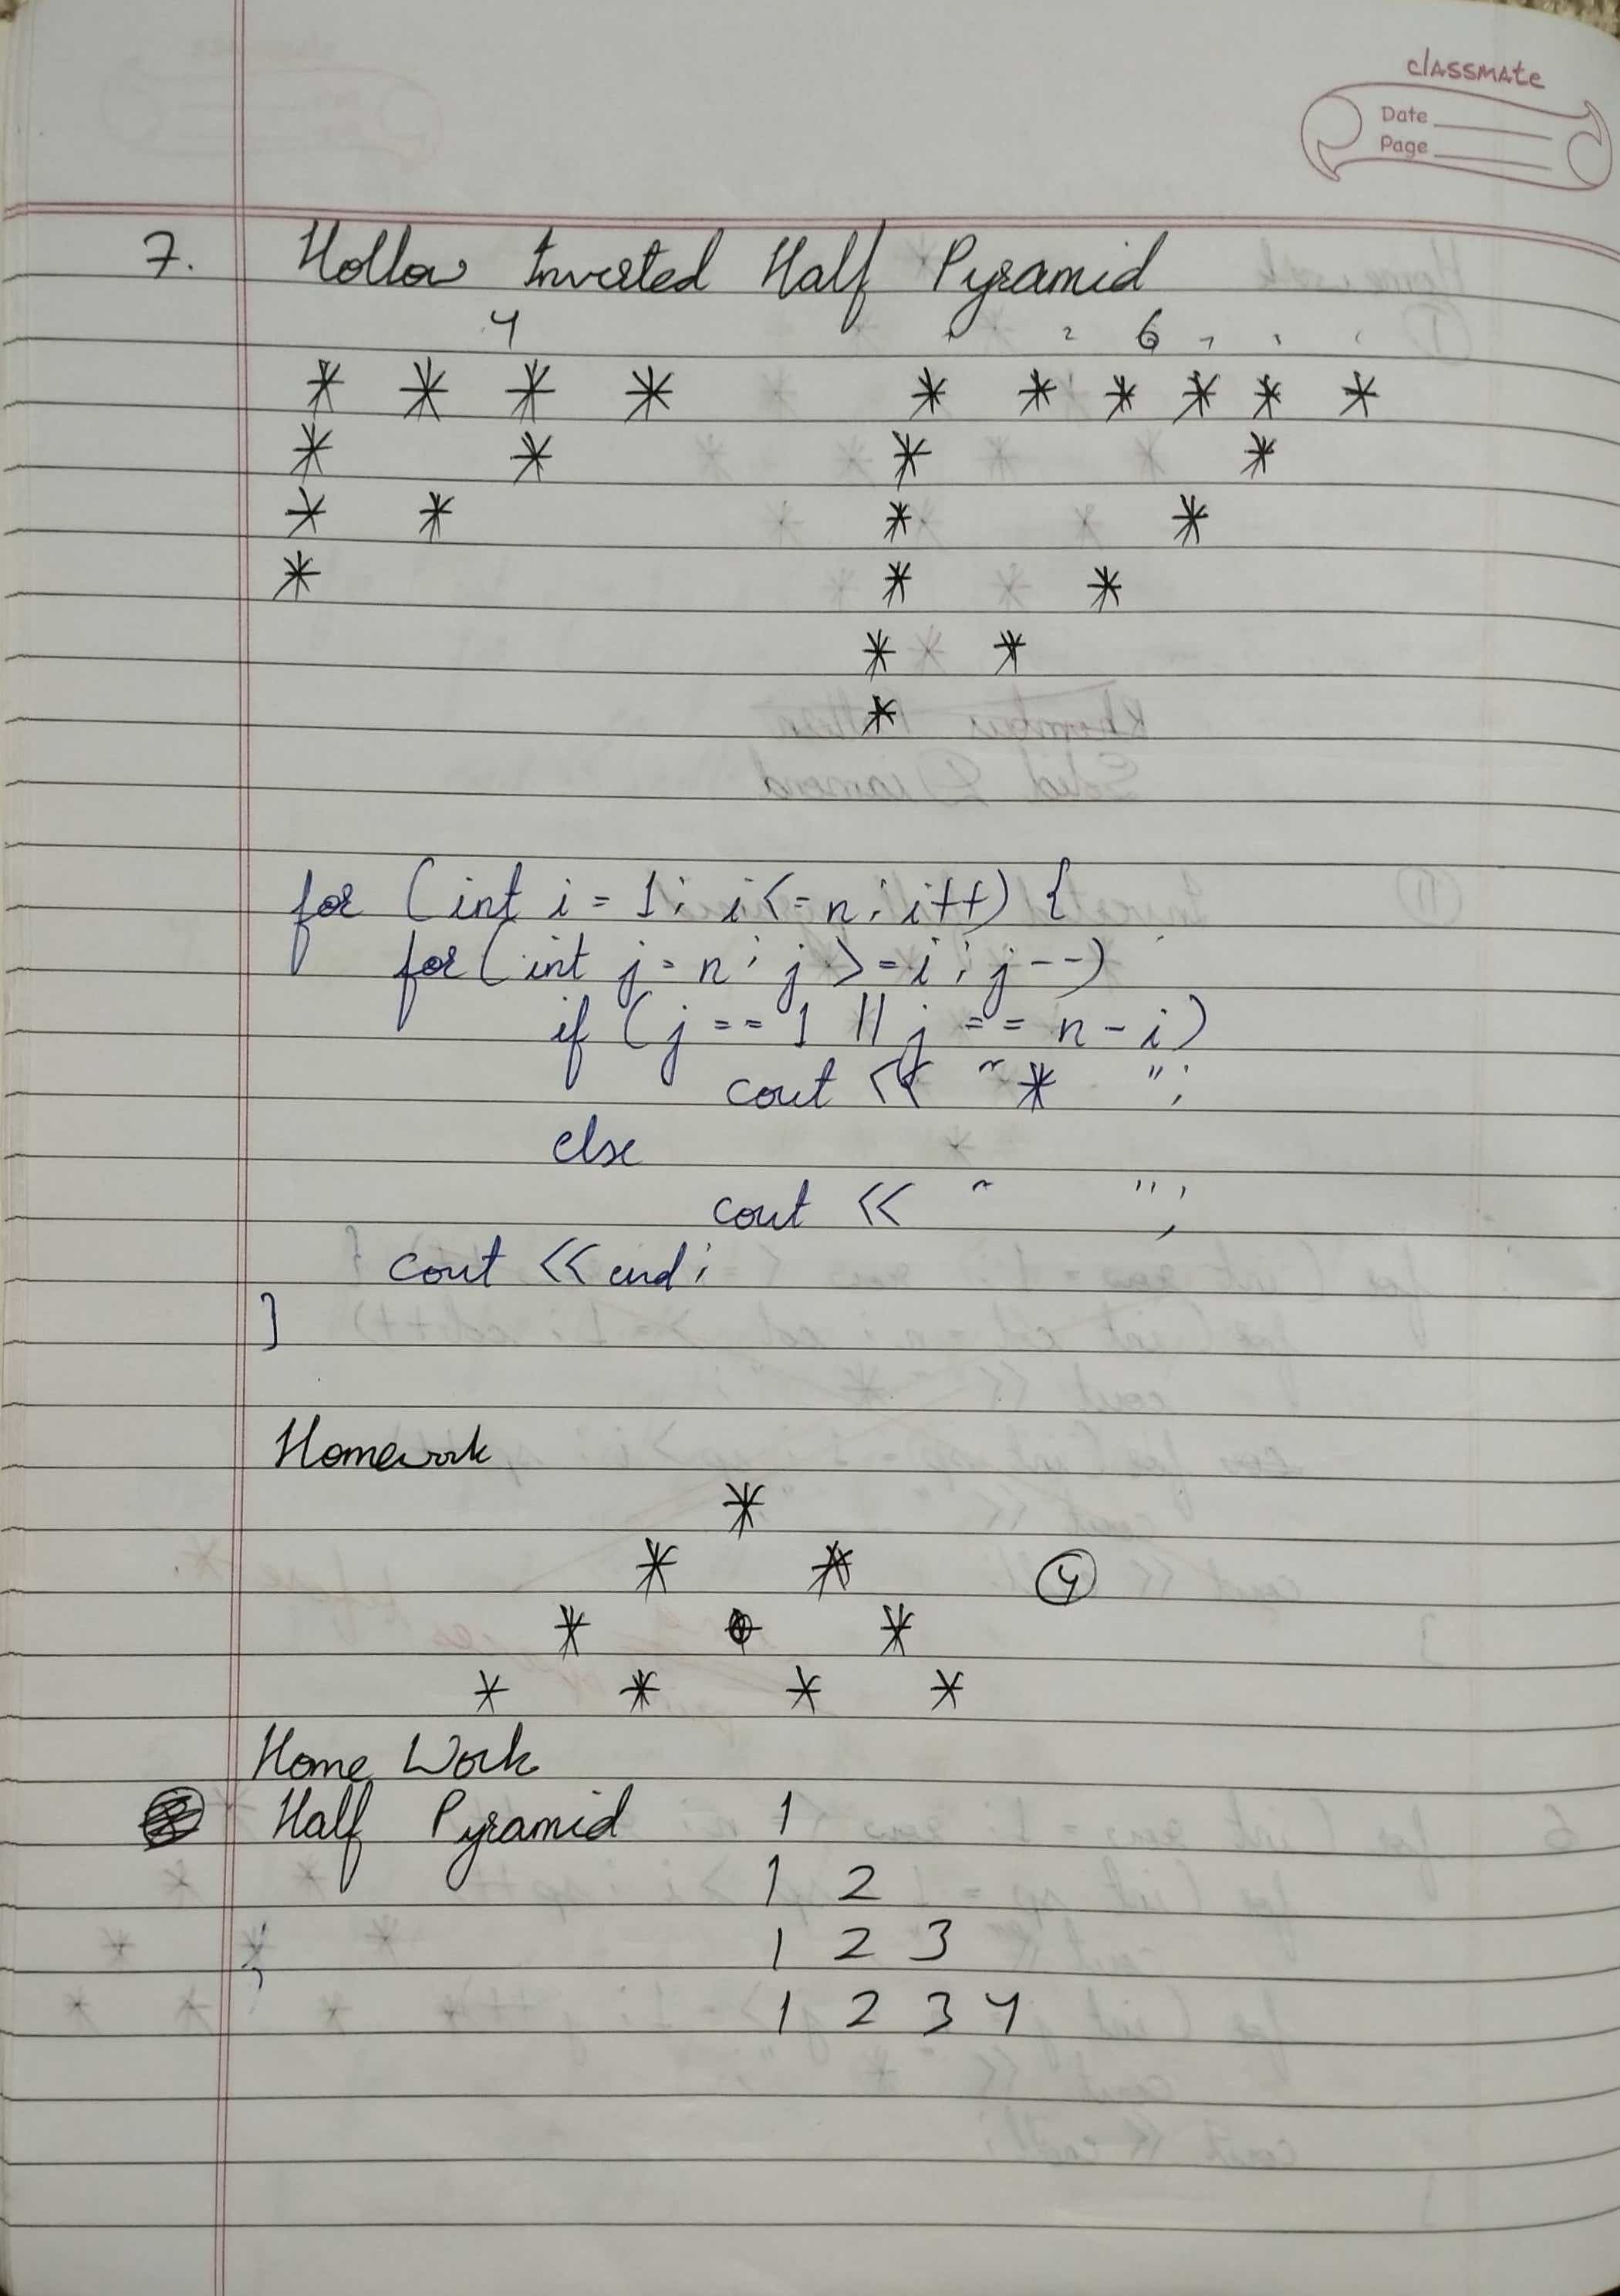 classmate
Date
Page
7. Hollow Inverted Half Pyramid
4 6
* * * * * * * * * *
* * * *
* * * *
* * *
* *
*
for (int i = 1; i <= n; i++) {
for (int j = n; j >= i; j--)
if (j == 1 || j == n - i)
cout << "* ";
else
cout << " ";
cout << end;
}
Homework
*
* * 4
* *
* * * *
Home Work
Half Pyramid 1
1 2
1 2 3
1 2 3 4